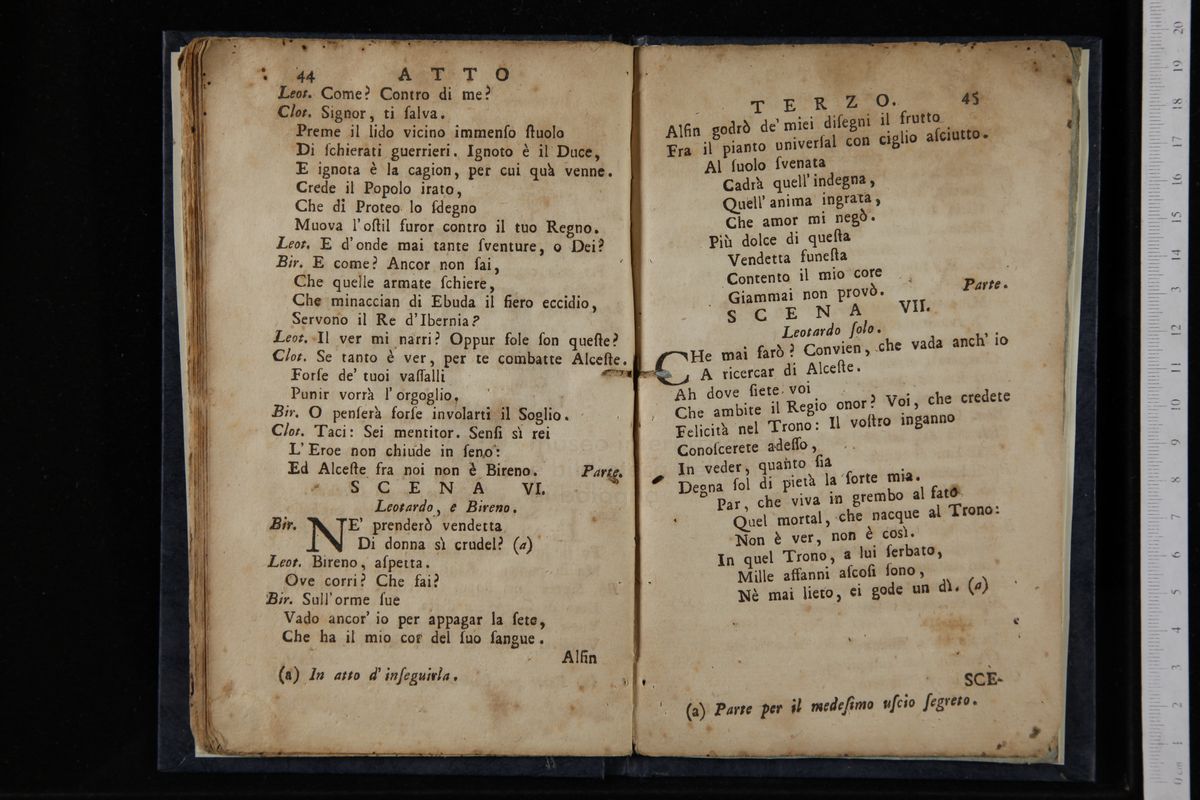 44 ATTO
Leot. Come? Contro di me?
Clot. Signor, ti ſalva.
Preme il lido vicino immenſo ſtuolo
Di ſchierati guerrieri. Ignoto è il Duce,
E ignota è la cagion, per cui quà venne.
Crede il Popolo irato,
Che di Proteo lo ſdegno
Muova l'oſtil furor contro il tuo Regno.
Leot. E d'onde mai tante ſventure, o Dei?
Bir. E come? Ancor non ſai,
Che quelle armate ſchiere,
Che minaccian di Ebuda il fiero eccidio,
Servono il Re d'Ibernia?
Leot. Il ver mi narri? Oppur ſole ſon queſte?
Clot. Se tanto è ver, per te combatte Alceſte.
Forſe de' tuoi vaſſalli
Punir vorrà l'orgoglio.
Bir. O penſerà forſe involarti il Soglio.
Clot. Taci: Sei mentitor. Senſi sì rei
L'Eroe non chiude in ſeno:
Ed Alceſte fra noi non è Bireno. Parte.
SCENA VI.
Leotardo, e Bireno.
Bir. NE' prenderò vendetta
Di donna sì crudel? (a)
Leot. Bireno, aſpetta.
Ove corri? Che fai?
Bir. Sull'orme ſue
Vado ancor' io per appagar la ſete,
Che ha il mio cor del ſuo ſangue.
Alfin
(a) In atto d'inſeguirla.
TERZO. 45
Alfin godrò de' miei diſegni il frutto
Fra il pianto univerſal con ciglio aſciutto.
Al ſuolo ſvenata
Cadrà quell'indegna,
Quell'anima ingrata,
Che amor mi negò.
Più dolce di queſta
Vendetta funeſta
Contento il mio core
Giammai non provò. Parte.
SCENA VII.
Leotardo ſolo.
CHe mai farò? Convien, che vada anch' io
A ricercar di Alceſte.
Ah dove ſiete voi
Che ambite il Regio onor? Voi, che credete
Felicità nel Trono: Il voſtro inganno
Conoſcerete adeſſo,
In veder, quanto ſia
Degna ſol di pietà la ſorte mia.
Par, che viva in grembo al fato
Quel mortal, che nacque al Trono:
Non è ver, non è così.
In quel Trono, a lui ſerbato,
Mille affanni aſcoſi ſono,
Nè mai lieto, ei gode un dì. (a)
SCE-
(a) Parte per il medeſimo uſcio ſegreto.